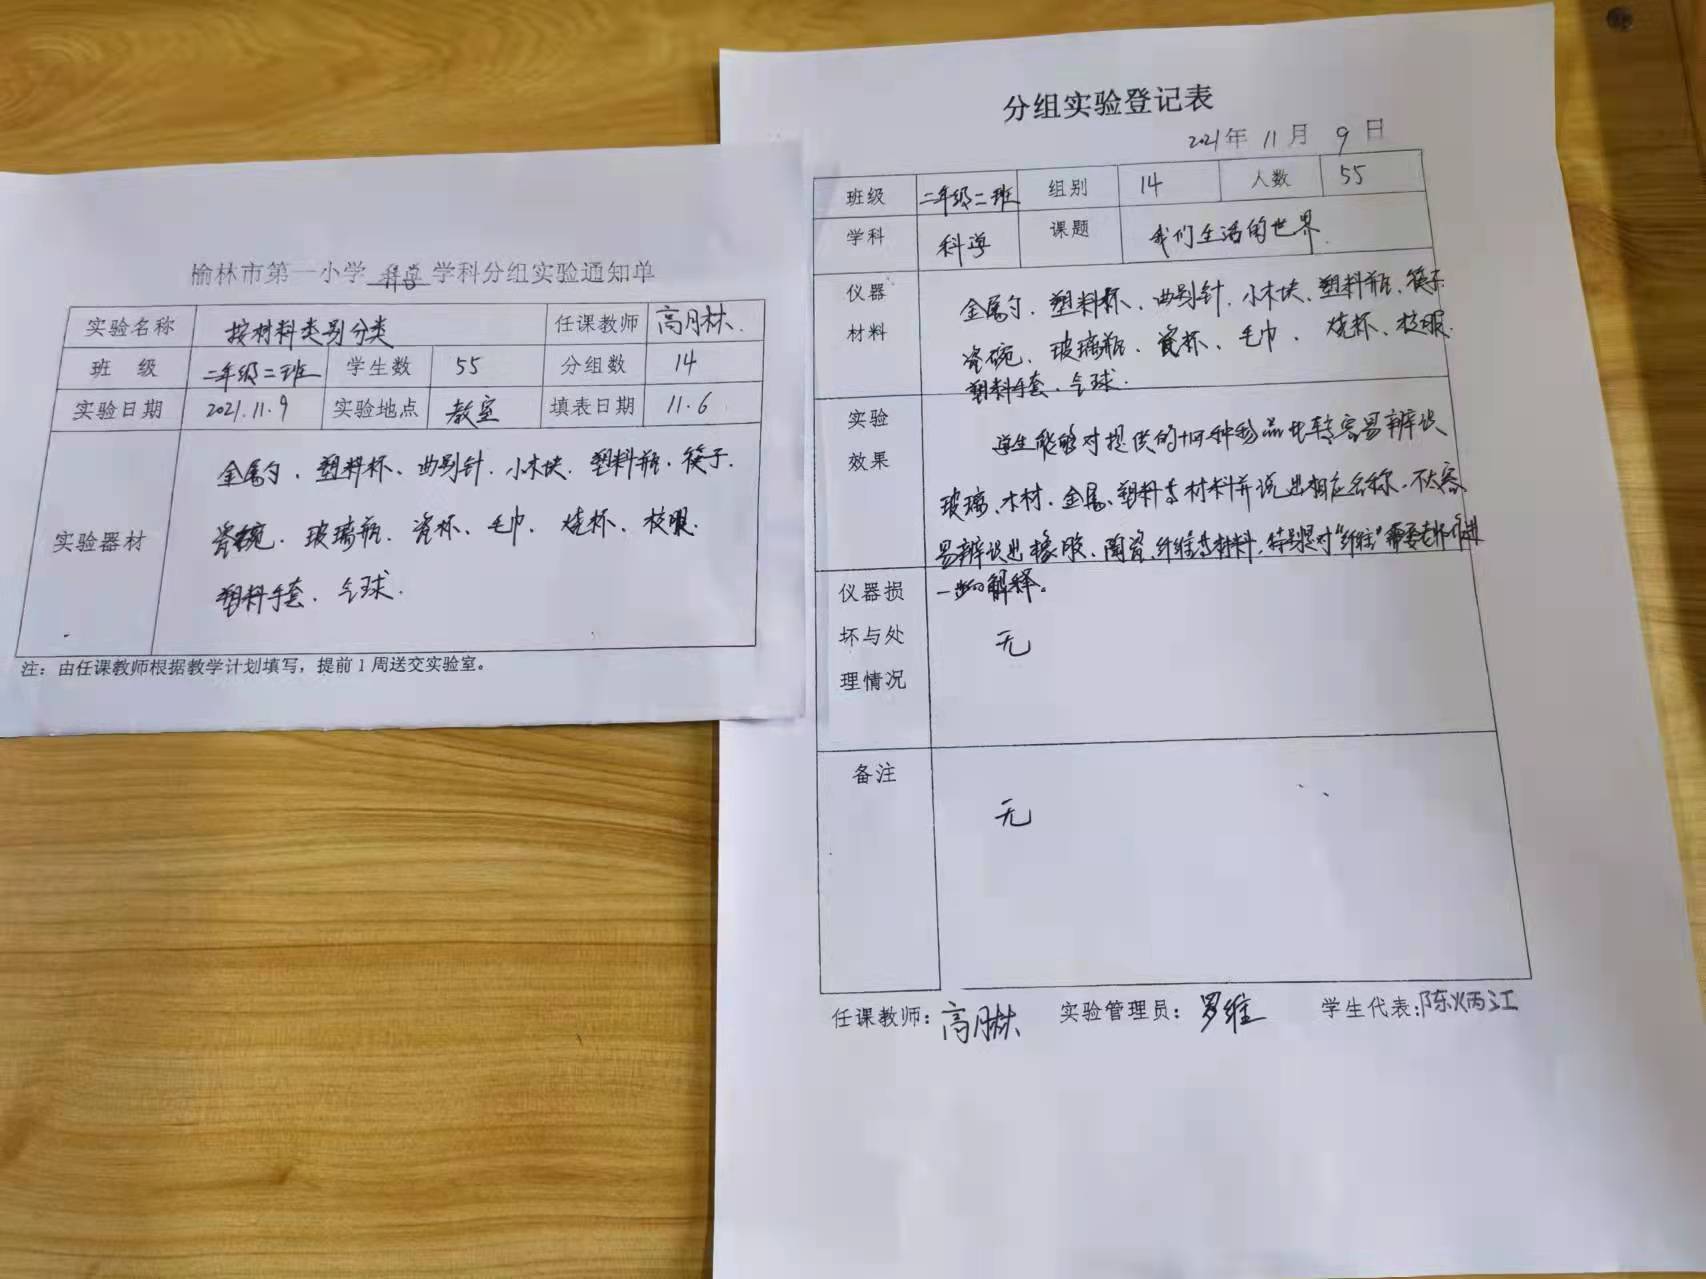 榆林市第一小学 科学 学科分组实验通知单
实验名称 按材料类别分类 任课教师 高月林.
班 级 二年级二班 学生数 55 分组数 14
实验日期 2021.11.9 实验地点 教室 填表日期 11.6
实验器材
金属勺、塑料杯、曲别针、小木块、塑料瓶、筷子.
瓷碗、玻璃瓶、瓷杯、毛巾、烧杯、校服.
塑料手套、气球.
注：由任课教师根据教学计划填写，提前1周送交实验室。
分组实验登记表
2021年 11月 9日
班级 二年级二班 组别 14 人数 55
学科 科学 课题 我们生活的世界.
仪器材料
金属勺、塑料杯、曲别针、小木块、塑料瓶、筷子.
瓷碗、玻璃瓶、瓷杯、毛巾、烧杯、校服.
塑料手套、气球.
实验效果
学生能够对提供的十四种物品比较容易辨识
玻璃、木材、金属、塑料等材料并说出相应名称.不太容
易辨识出橡胶、陶瓷、纤维等材料，特别是对“纤维”需要老师作进
一步的解释。
仪器损坏与处理情况 无
备注 无
任课教师：高月林 实验管理员：罗维 学生代表：陈炳江